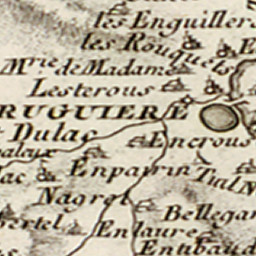 les Enguillers
les Rouquels
Mrie de Madame
Lesterous
RUGUIERE
Dulac
Encrous
Enpairin
Nagrel
Bellegar
Enlaure
Entibaud